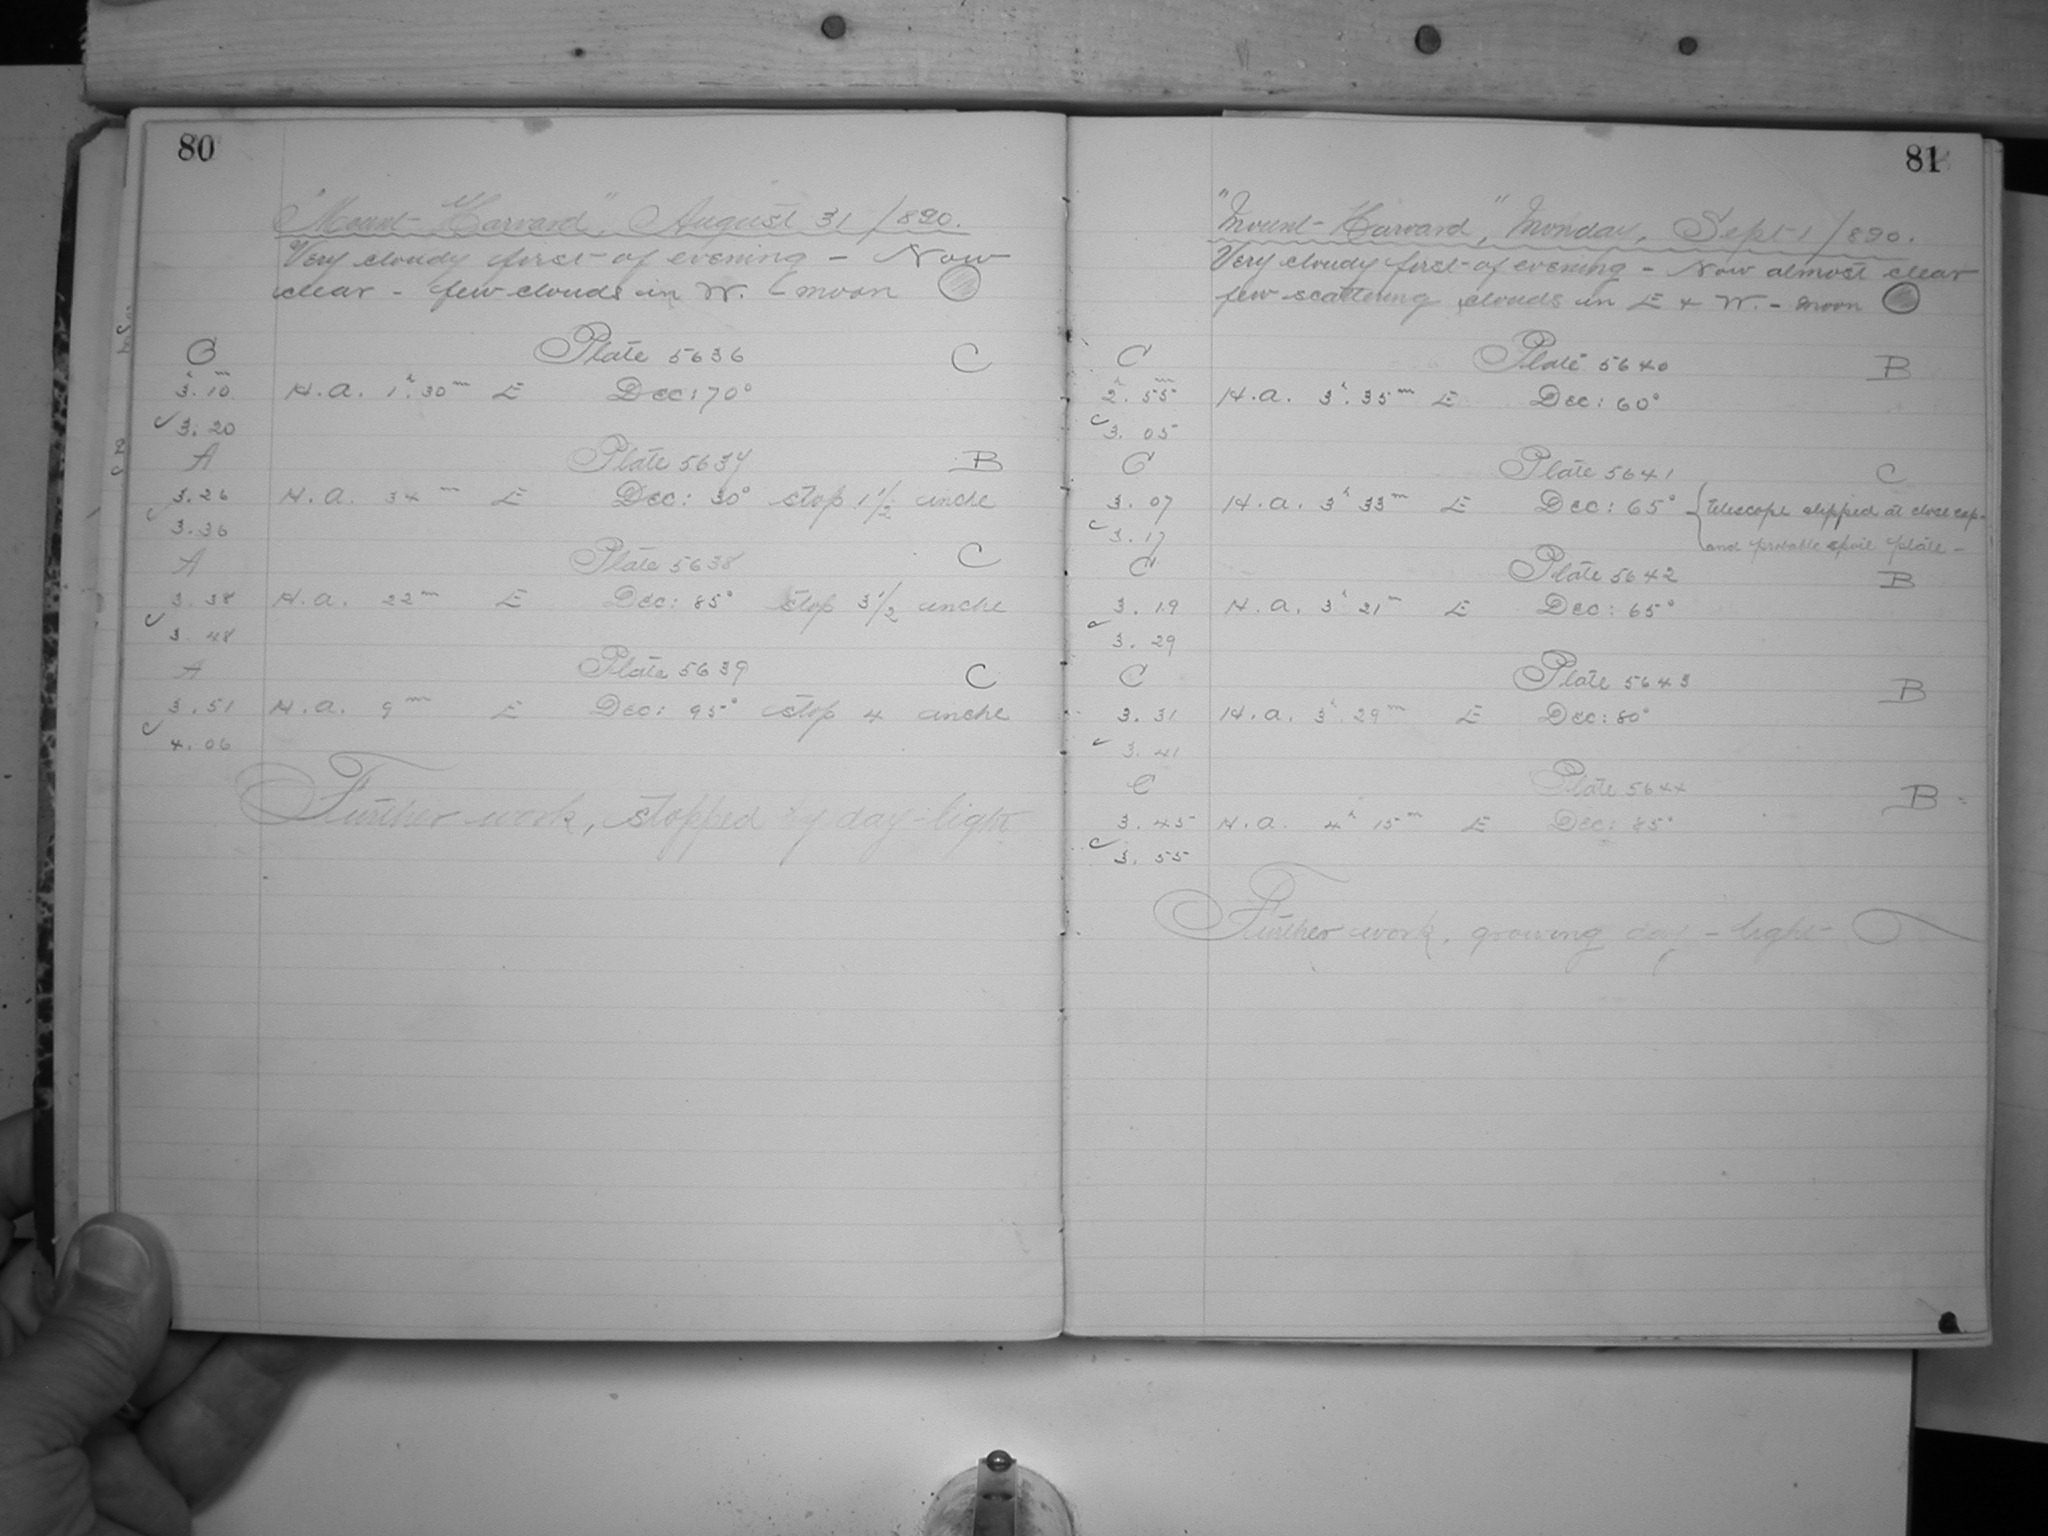 80
"Mount Harvard", August 31/890.
Very cloudy first of evening - Now
clear - few clouds in W. - moon
C Plate 5636 C
3h.10m H.a. 1h.30m E Dec: 70°
✓3.20
A Plate 5637 B
3.26 H.a. 34m E Dec: 30° stop 1 1/2 inche
✓3.36
A Plate 5638 C
3.38 H.a. 22m E Dec: 85° stop 3 1/2 inche
✓3.48
A Plate 5639 C
3.51 H.a. 9m E Dec: 95° stop 4 inche
✓4.06
Further work, stopped by day-light
81
"Mount Harvard", Monday, Sept 1/890.
Very cloudy first of evening - Now almost clear
few scattering clouds in E & W. - moon
C Plate 5640 B
2h.55m H.a. 3h.35m E Dec: 60°
✓3.05
C Plate 5641 C
3.07 H.a. 3h 33m E Dec: 65° { telescope slipped at close cap-
✓3.17 and probable spoil plate -
C Plate 5642 B
3.19 H.a. 3h 21m E Dec: 65°
✓3.29
C Plate 5643 B
3.31 H.a. 3h.29m E Dec: 80°
✓3.41
C Plate 5644 B
3.45 H.a. 4h 15m E Dec: 85°
✓3.55
Further work, growing day-light